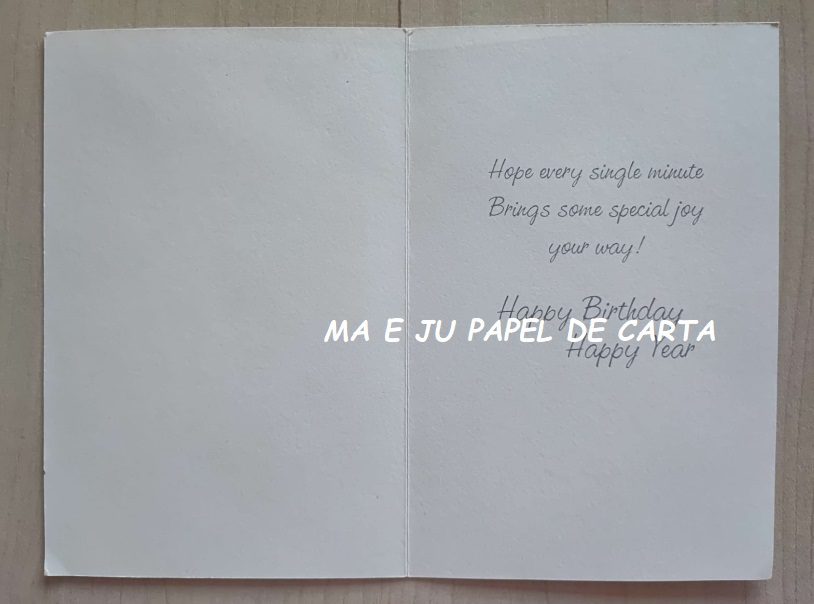 Hope every single minute
Brings some special joy
your way!
Happy Birthday
MA E JU PAPEL DE CARTA
Happy Year